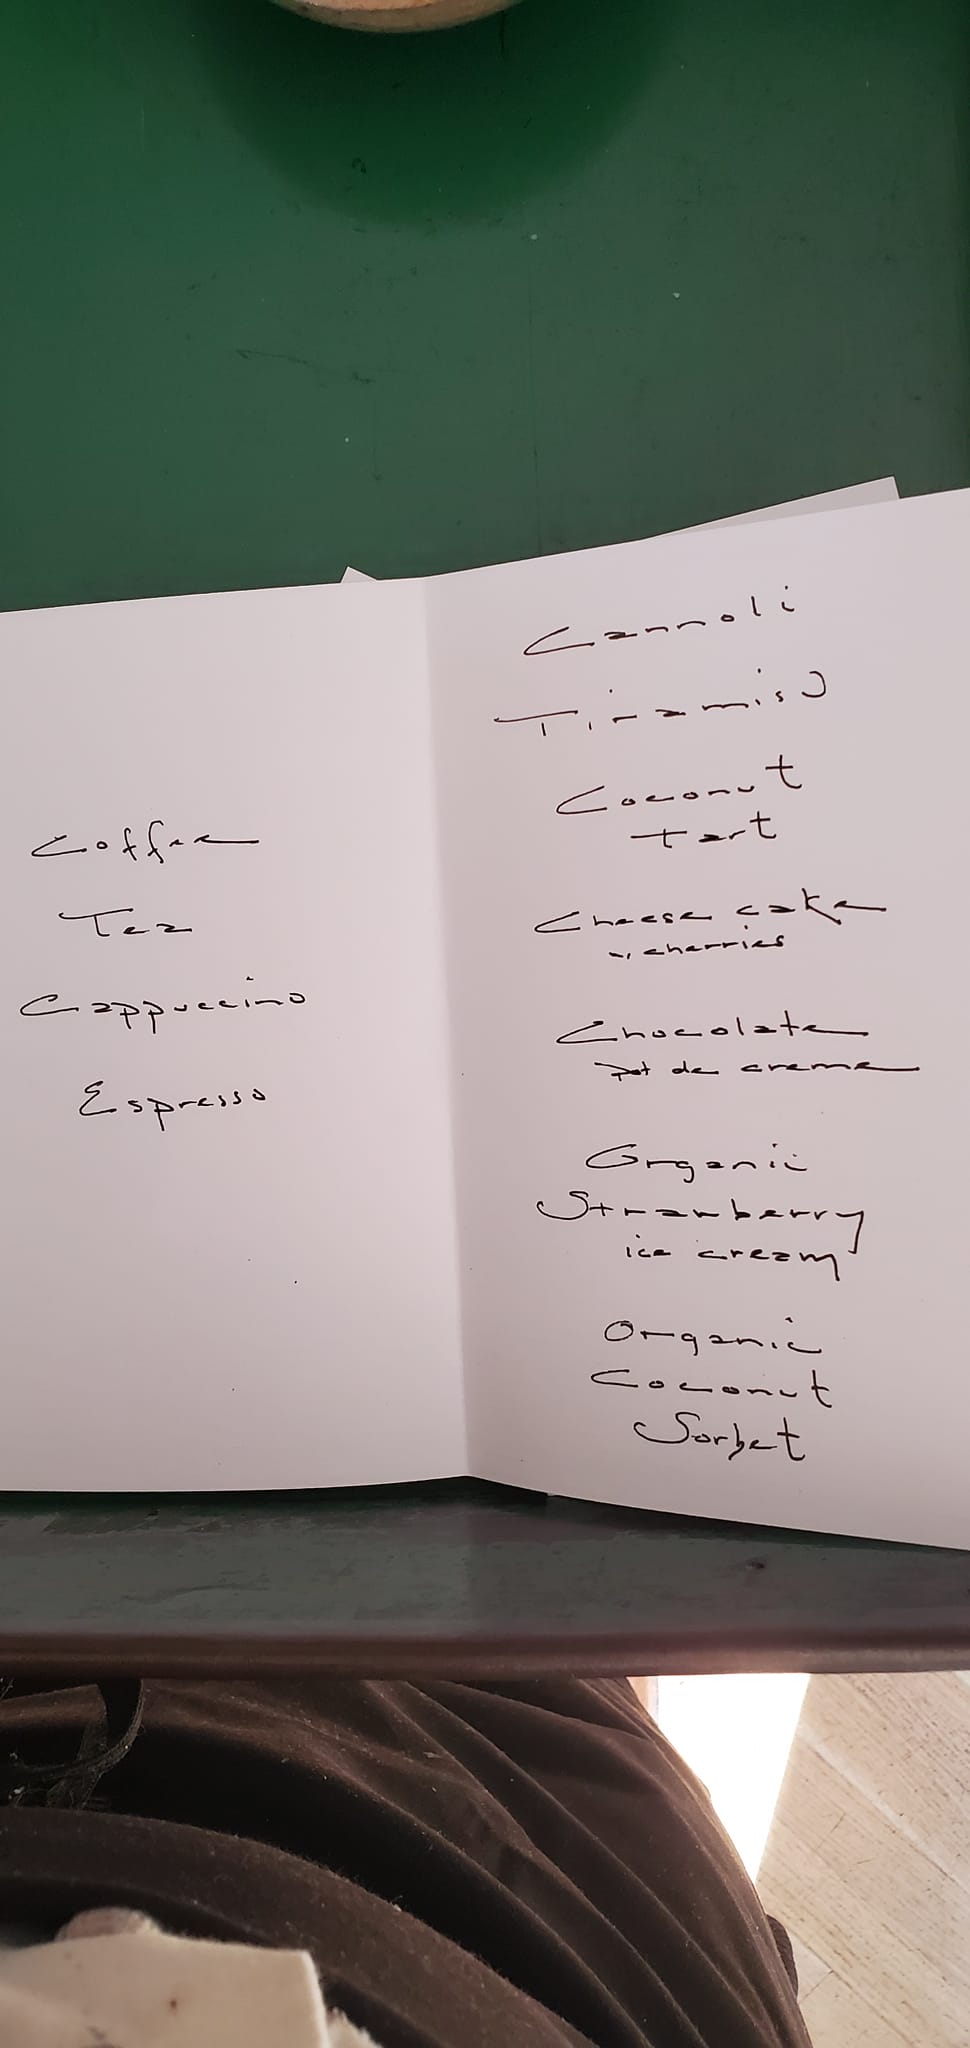 Coffee
Tea
Cappuccino
Espresso
Cannoli
Tiramisu
Coconut
Tart
Cheese cake
w/ cherries
Chocolate
Pot de creme
Organic
Strawberry
ice cream
Organic
Coconut
Sorbet